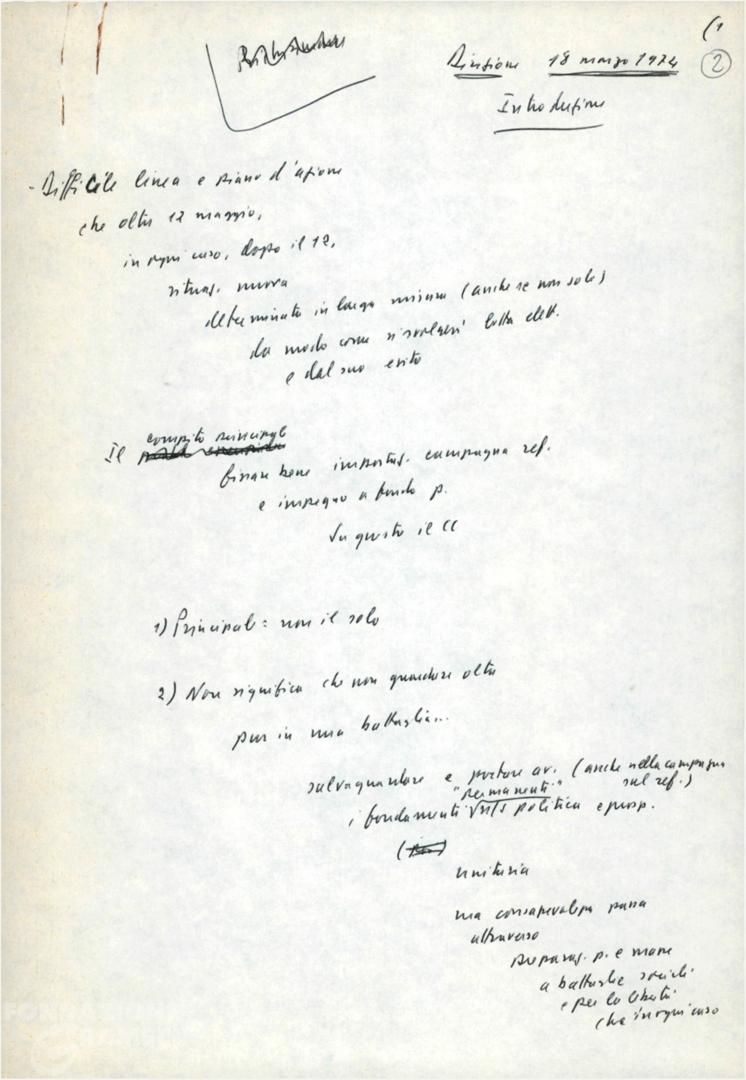 (1
2
Direzione 18 marzo 1974
Introduzione
- Difficile linea e piano d'azione
che oltre 12 maggio,
in ogni caso, dopo il 12,
situaz. nuova
determinata in larga misura (anche se non solo)
da modo come si svolgerà lotta elett.
e dal suo esito
Il compito principale
fissare bene importaz. campagna ref.
e impegno a fondo p.
Su questo il CC
1) Principale = non il solo
2) Non significa che non guardare oltre
pur in una battaglia...
salvaguardare e portare av. (anche nella campagna
sul ref.)
"permanenti"
i fondamenti ns/s politica e prosp.
unitaria
ma consapevolezza passa
attraverso
preparaz. p. e masse
a battaglie sociali
e per la libertà
che in ogni caso
FONDAZIONE
GRAMSCI